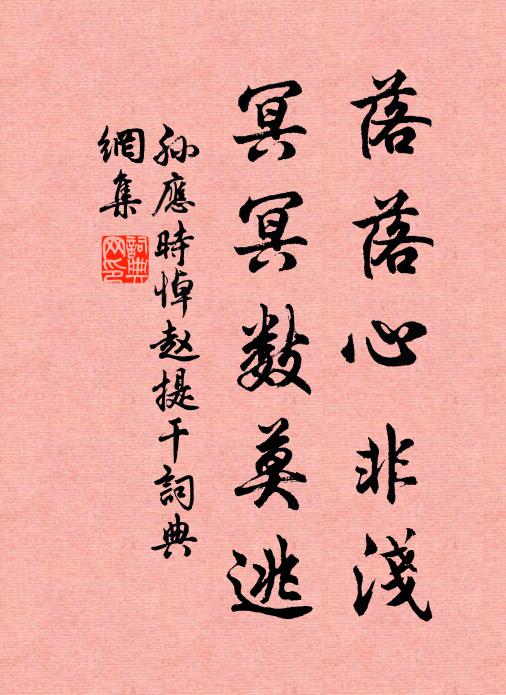 落落心非淺
冥冥數莫逃
孫應時悼趙提干詞典
網集
詞典網印